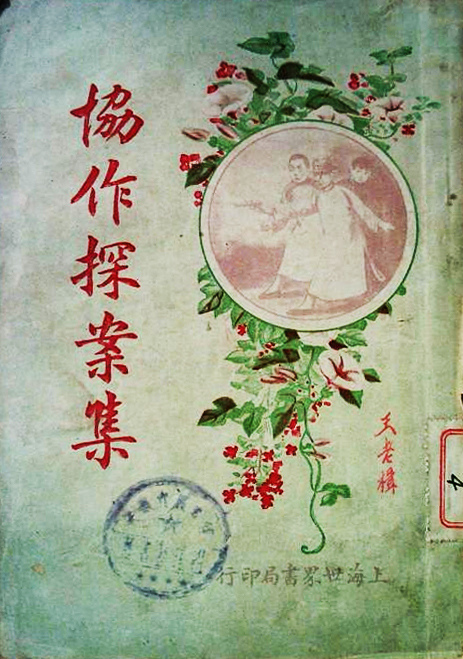 協作探案集
上海世界書局印行
4